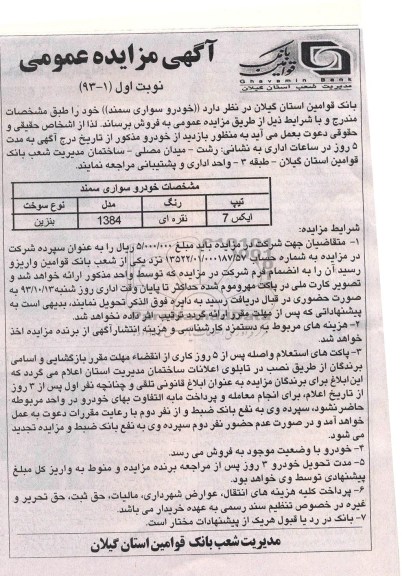 بانک
قوامین
Ghavamin Bank
مدیریت شعب استان گیلان
آگهی مزایده عمومی
نوبت اول (۱-۹۳)
بانک قوامین استان گیلان در نظر دارد ((خودرو سواری سمند)) خود را طبق مشخصات
مندرج و با شرایط ذیل از طریق مزایده عمومی به فروش برساند. لذا از اشخاص حقیقی و
حقوقی دعوت بعمل می آید به منظور بازدید از خودرو مذکور از تاریخ درج آگهی به مدت
۵ روز در ساعات اداری به نشانی: رشت - میدان مصلی - ساختمان مدیریت شعب بانک
قوامین استان گیلان - طبقه ۳ - واحد اداری و پشتیبانی مراجعه نمایند.
مشخصات خودرو سواری سمند
تیپ رنگ مدل نوع سوخت
ایکس 7 نقره ای 1384 بنزین
شرایط مزایده:
۱- متقاضیان جهت شرکت در مزایده باید مبلغ ۵/۰۰۰/۰۰۰ ریال را به عنوان سپرده شرکت
در مزایده به شماره حساب ۱۳۵۲۲/۰۱/۰۰۰۱۸۷/۵۷ نزد یکی از شعب بانک قوامین واریز و
رسید آن را به انضمام فرم شرکت در مزایده که توسط واحد مذکور ارائه خواهد شد و
تصویر کارت ملی در پاکت مهروموم شده حداکثر تا پایان وقت اداری روز شنبه ۹۳/۱۰/۱۳ به
صورت حضوری در قبال دریافت رسید به دایره فوق الذکر تحویل نمایند، بدیهی است به
پیشنهاداتی که پس از مهلت مقرر ارائه گردد ترتیب اثر داده نخواهد شد.
۲- هزینه های مربوط به دستمزد کارشناسی و هزینه انتشار آگهی از برنده مزایده اخذ
خواهد شد.
۳- پاکت های استعلام واصله پس از ۵ روز کاری از انقضاء مهلت مقرر بازگشایی و اسامی
برندگان از طریق نصب در تابلوی اعلانات ساختمان مدیریت استان اعلام می گردد که
این ابلاغ برای برندگان مزایده به عنوان ابلاغ قانونی تلقی و چنانچه نفر اول پس از ۳ روز
از تاریخ اعلام، برای انجام معامله و پرداخت مابه التفاوت بهای خودرو در واحد مربوطه
حاضر نشود، سپرده وی به نفع بانک ضبط و از نفر دوم با رعایت مقررات دعوت به عمل
خواهد آمد و در صورت عدم حضور نفر دوم سپرده وی به نفع بانک ضبط و مزایده تجدید
می شود.
۴- خودرو با وضعیت موجود به فروش می رسد.
۵- مدت تحویل خودرو ۳ روز پس از مراجعه برنده مزایده و منوط به واریز کل مبلغ
پیشنهادی توسط وی خواهد بود.
۶- پرداخت کلیه هزینه های انتقال، عوارض شهرداری، مالیات، حق ثبت، حق تحریر و
غیره در خصوص تنظیم سند رسمی به عهده خریدار می باشد.
۷- بانک در رد یا قبول هریک از پیشنهادات مختار است.
مدیریت شعب بانک قوامین استان گیلان